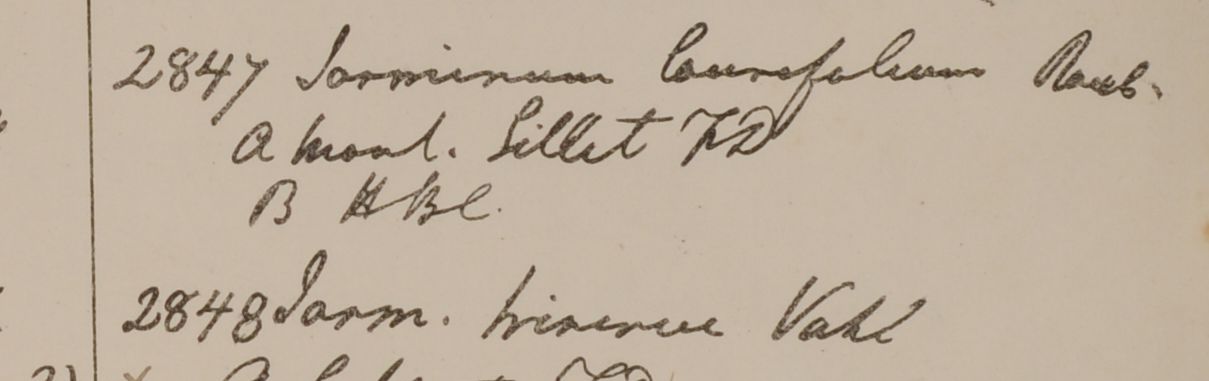 2847 Jasminum laurifolium Roxb.
A Mont. Sillet FD
B HBC.
2848 Jasm. trinerve Vahl